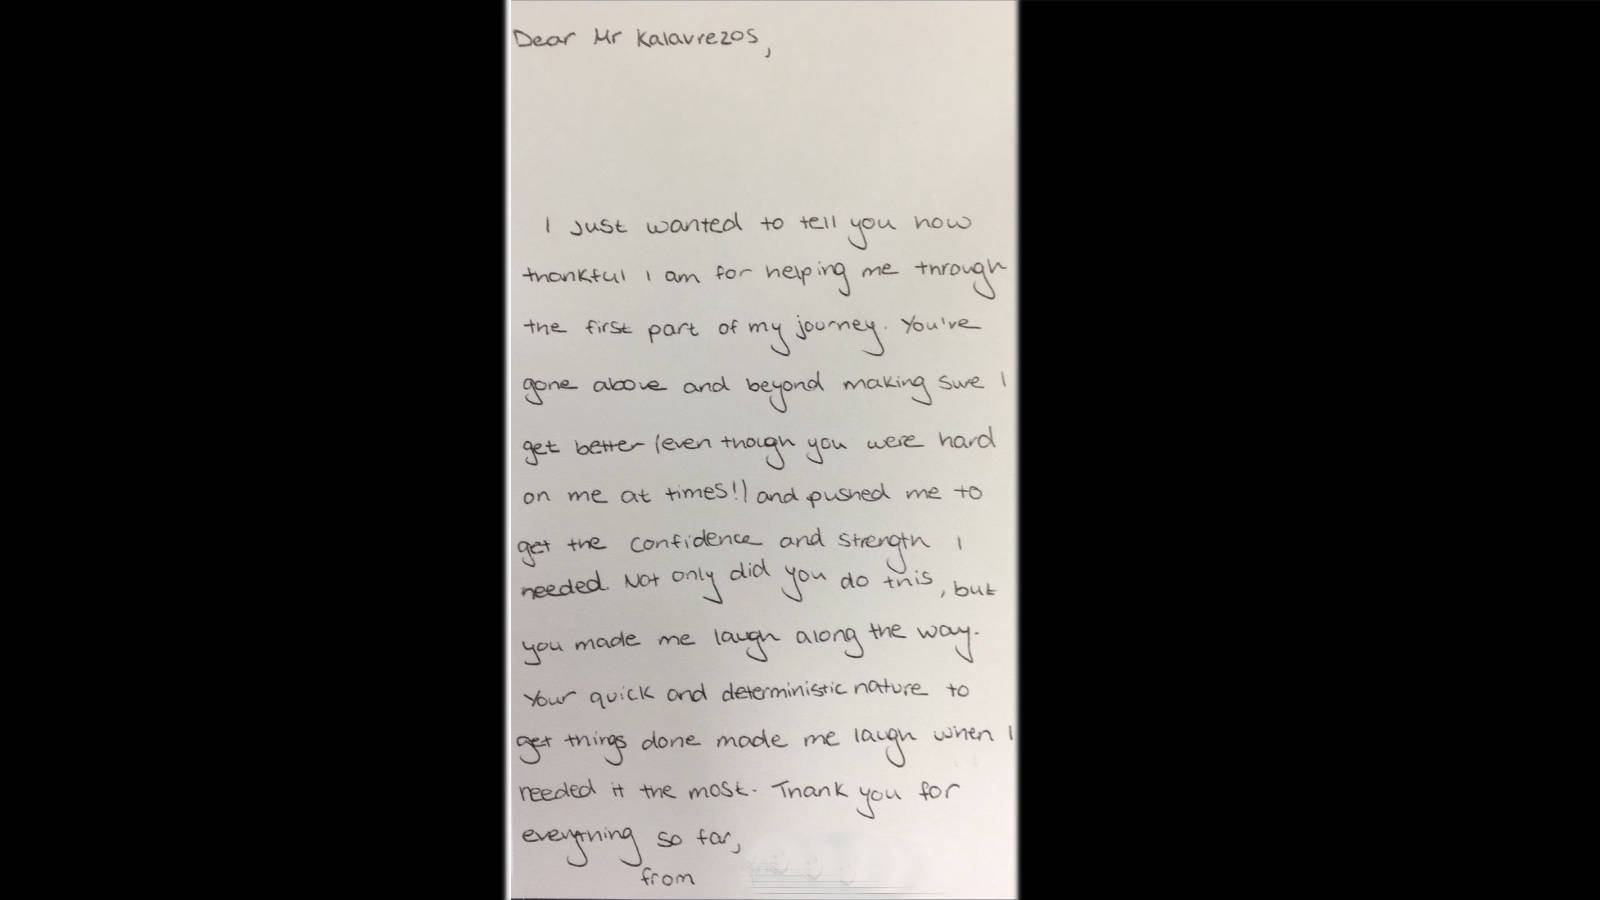 Dear Mr Kalavrezos,
I just wanted to tell you how
thankful I am for helping me through
the first part of my journey. You've
gone above and beyond making sure I
get better (even though you were hard
on me at times!) and pushed me to
get the confidence and strength I
needed. Not only did you do this, but
you made me laugh along the way.
Your quick and deterministic nature to
get things done made me laugh when I
needed it the most. Thank you for
everything so far,
from